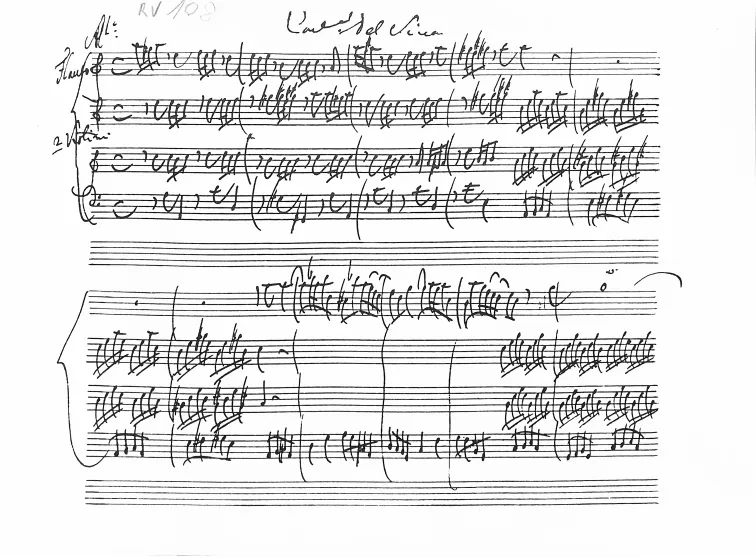 RV 108
Conto Del Viva
All:
Flauto
2 Violini